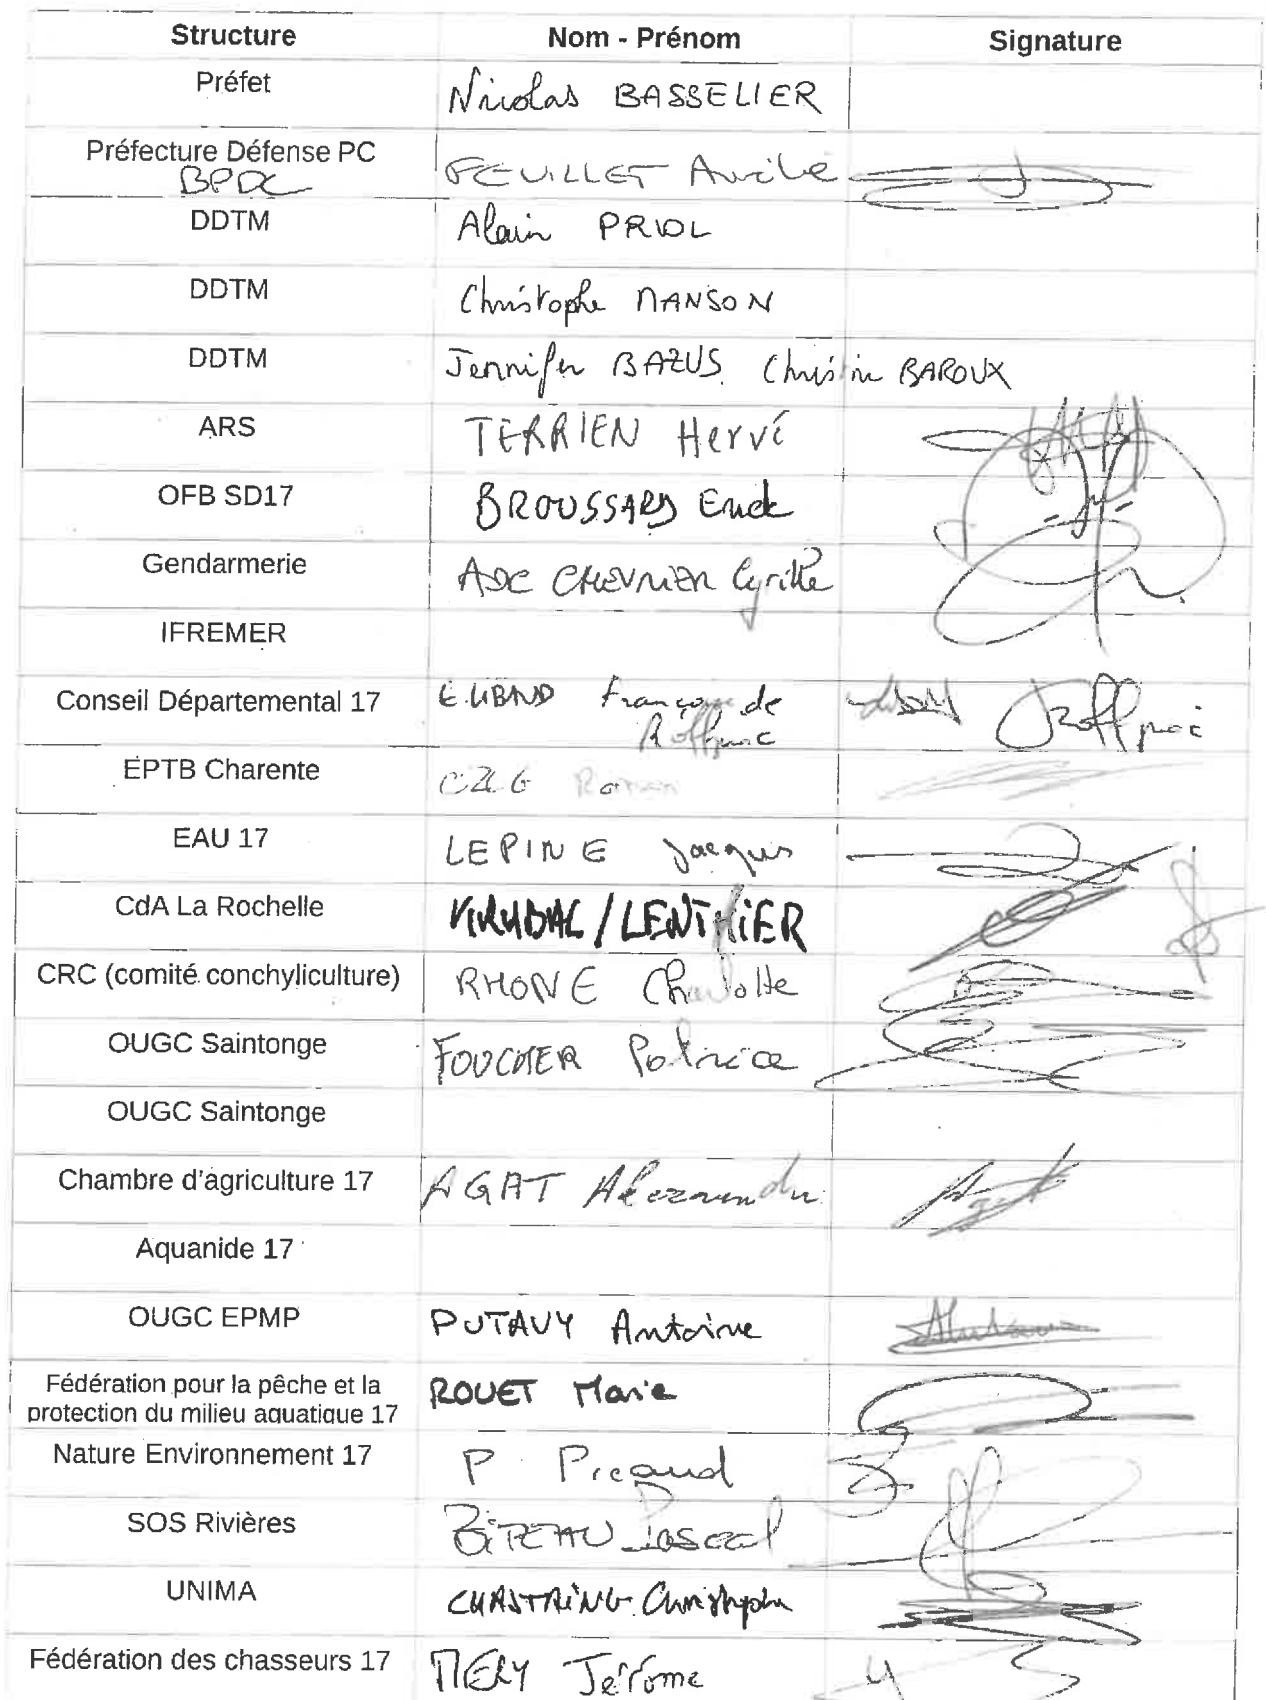 Structure Nom - Prénom Signature
Préfet Nicolas BASSELIER
Préfecture Défense PC
BPDC FEUILLET
DDTM Alain PRIOL
DDTM Christophe MANSON
DDTM Jennifer BAZUS Christine BAROUX
ARS TERRIEN Hervé
OFB SD17 BROUSSARD Erick
Gendarmerie ADC CHEVRIER Cyrille
IFREMER
Conseil Départemental 17 Françoise de
Roffignac
EPTB Charente Romain
EAU 17 LEPINE Jacques
CdA La Rochelle LENTHIER
CRC (comité conchyliculture) RHONE Charlotte
OUGC Saintonge FOUCHER Patrice
OUGC Saintonge
Chambre d'agriculture 17 AGAT Alexandre
Aquanide 17
OUGC EPMP PUTAVY Antoine
Fédération pour la pêche et la
protection du milieu aquatique 17 ROUET Marie
Nature Environnement 17 P. Picaud
SOS Rivières BITEAU Pascal
UNIMA CHASTAING Christophe
Fédération des chasseurs 17 MERY Jérôme